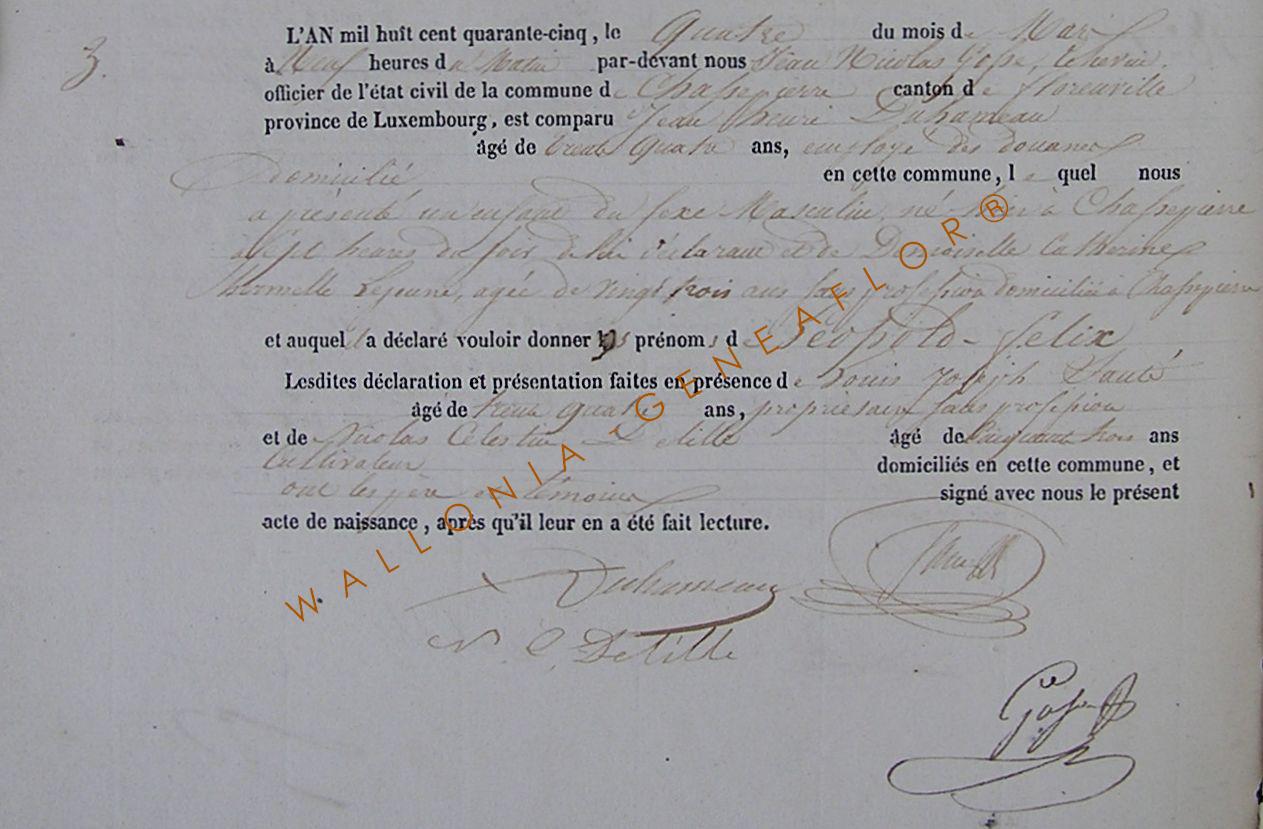 3.
L'AN mil huit cent quarante-cinq, le quatre du mois de
à Neuf heures du Matin par-devant nous Jean Nicolas
officier de l'état civil de la commune de Chassepierre canton de florenville
province de Luxembourg, est comparu Jean henri Duhameau
âgé de trente quatre ans, employé des douanes
domicilié en cette commune, le quel nous
a présenté un enfant du sexe Masculin, né hier à Chassepierre
à sept heures du soir de lui déclarant et de Demoiselle Catherine
Lejeune, agée de vingt trois ans sans profession domiciliée à Chassepierre
et auquel il a déclaré vouloir donner les prénoms de Léopold-felix
Lesdites déclaration et présentation faites en présence de Louis Joseph
âgé de trente quatre ans, propriétaire sans profession
et de Nicolas Celestin Delille âgé de Cinquante trois ans
Cultivateur domiciliés en cette commune, et
ont les père et témoins signé avec nous le présent
acte de naissance, après qu'il leur en a été fait lecture.
Duhameau
N. C. Delille
WALLONIA-GENEAFLOR®